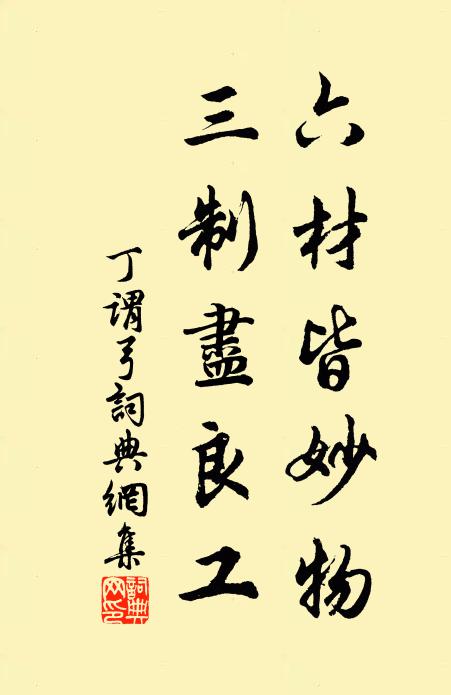 六材皆妙物
三制盡良工
丁謂弓詞典網集
詞典網印